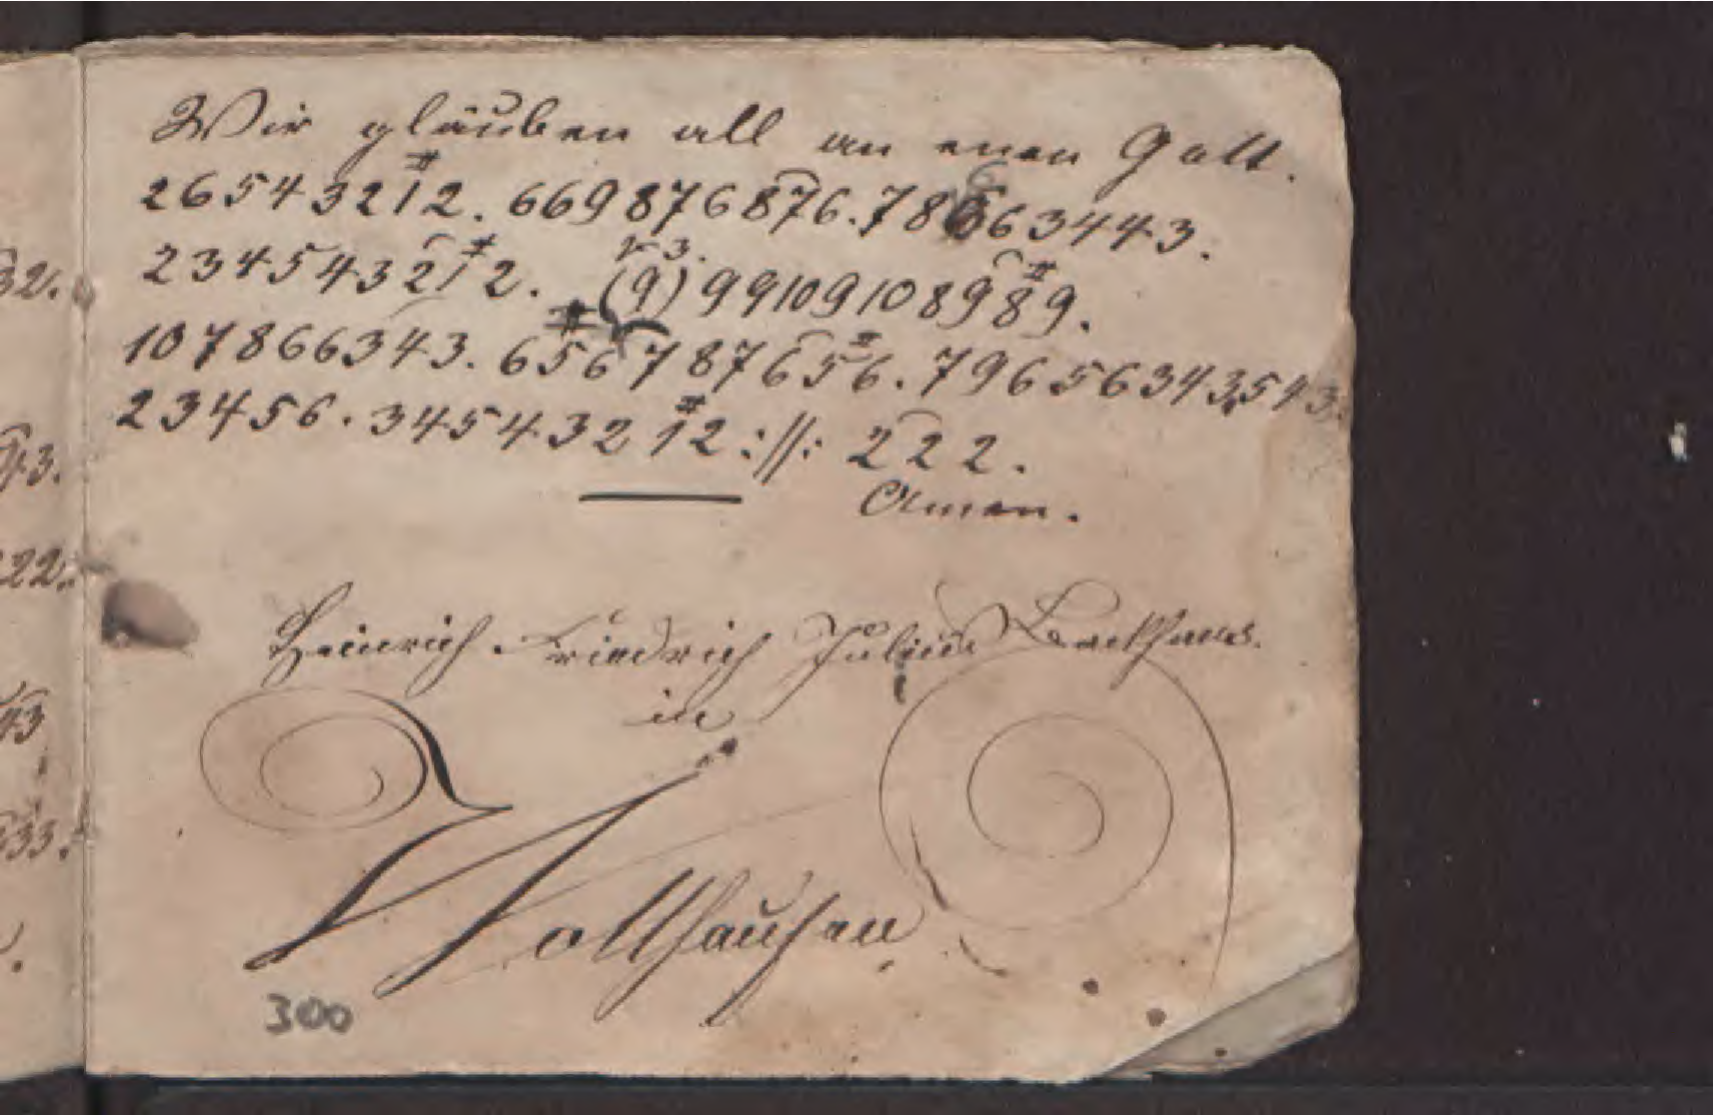 Wir gläuben all an enen Gott.
26543212. 669876876. 786663443.
32.
2345543212. (9) 99109108989.
v 3.
107866343. 6567876 56. 796563 43,543.
23456. 345432 12 :||: 222.
93.
Amen.
22.
Heinrich Friedrich Julius Backhaus.
in
43
Voltlhausen
33.
300